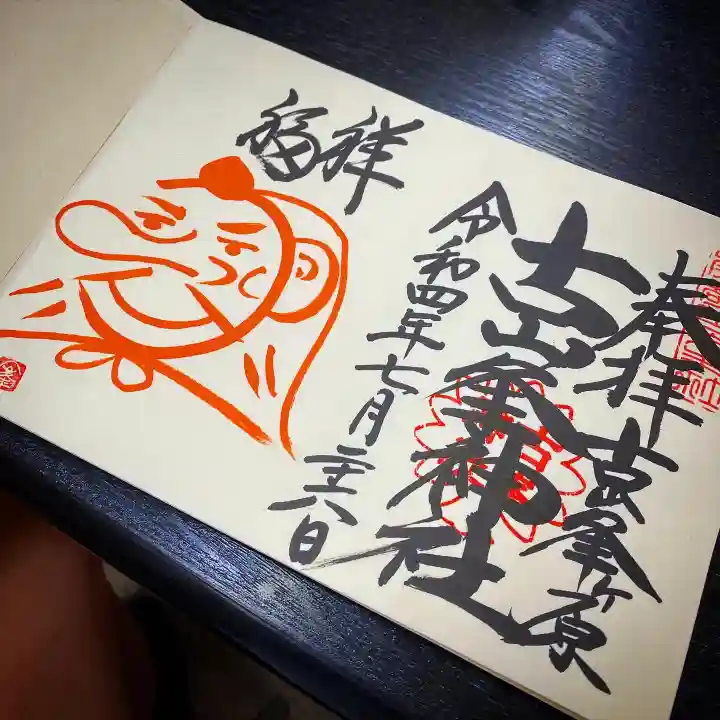 奉拝 古峯ヶ原
古峯神社
令和四年七月二十八日
福祥